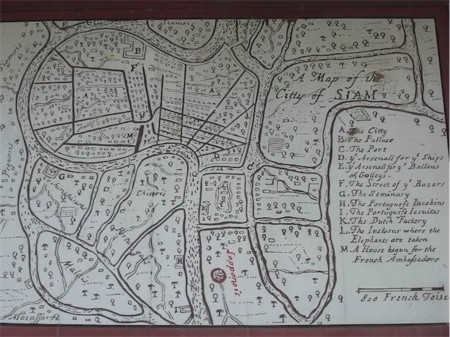 A Map of the
Citty of SIAM
A. The Citty
B. The Pallace
C. The Port
D. yͤ Arsenall for yͤ Ships
E. yͤ Arsenall for yͤ Ballons
& Galleys.
F. The Street of yͤ Bazars
G. The Seminary
H. The Portuguese Iacobins
I. The Portuguese Iesuites
K. The Dutch Factory
L. The Inclosur where the
Elephants are taken
M. A House begun for the
French Ambassadors
800 French Toises
Chineis
Malais
Macassars
Japponeis
A
A
B
F
M
G
H
K